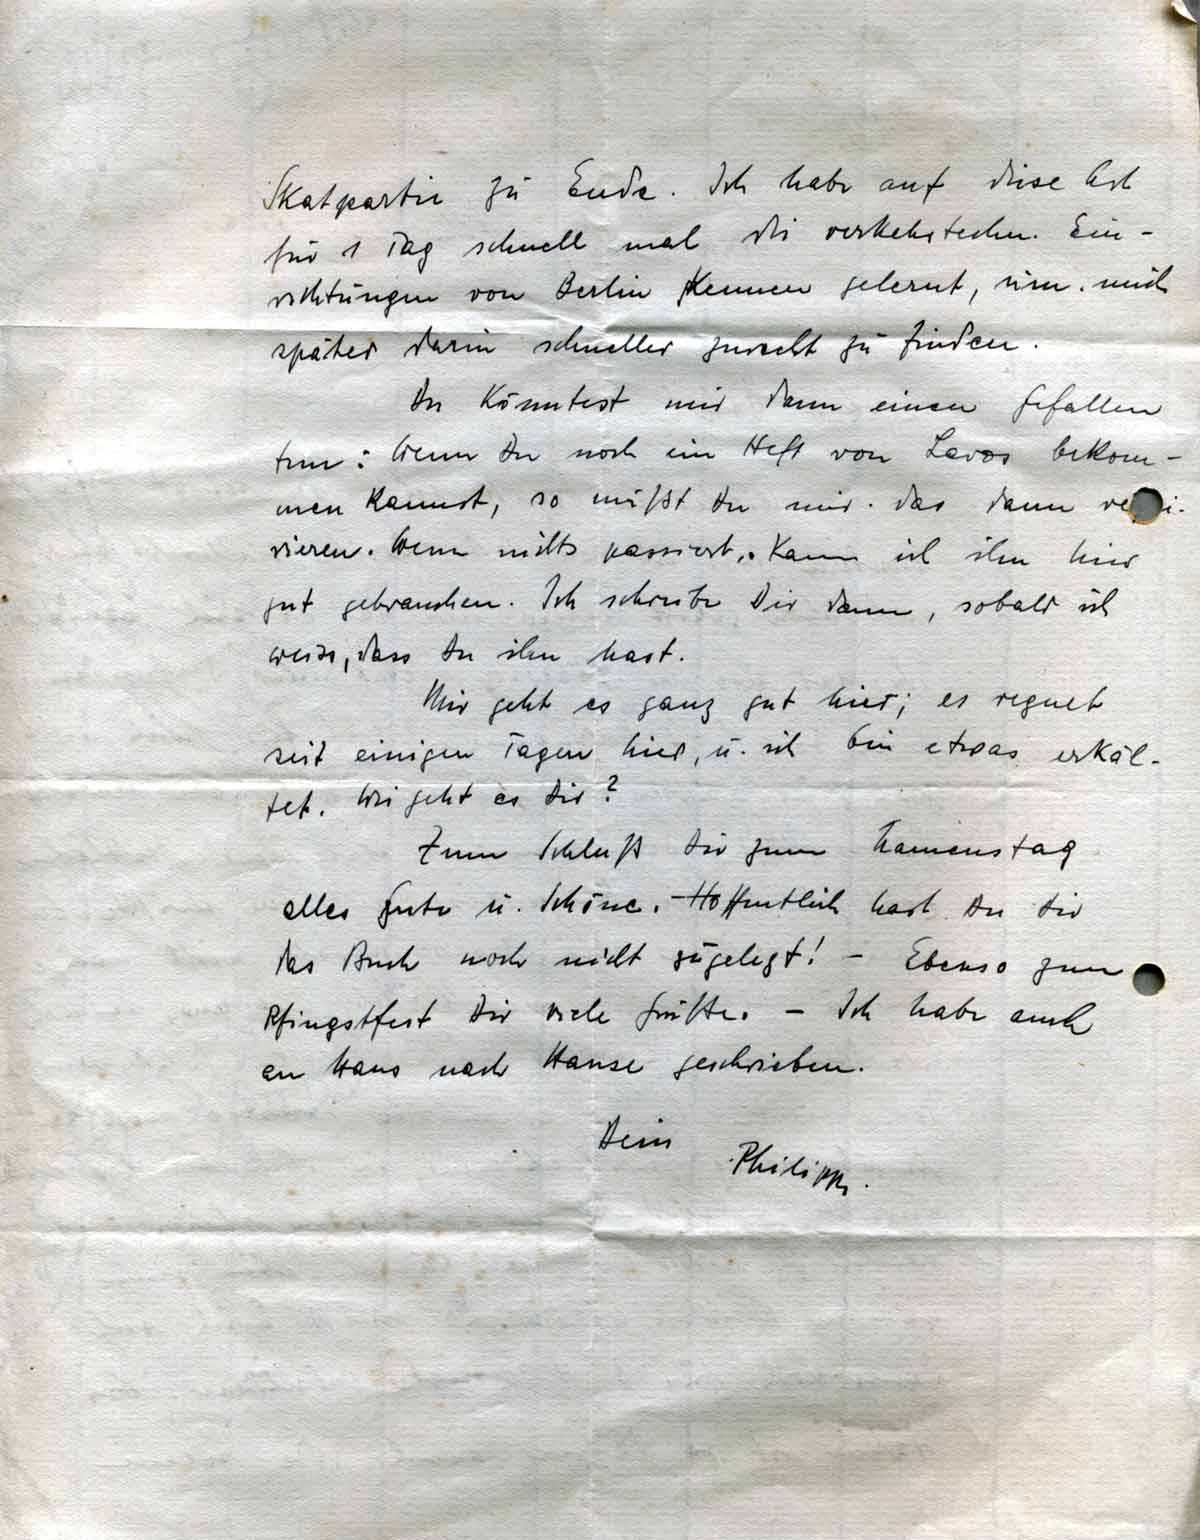 Skatpartie zu Ende. Ich habe auf diese Art
für 1 Tag schnell mal die verkehrstechn. Ein-
richtungen von Berlin kennen gelernt, um mich
später darin schneller zurecht zu finden.
Du könntest mir dann einen Gefallen
tun: Wenn Du noch ein Heft von Lavos bekom-
men kannst, so müßt Du mir das dann
vieren. Wenn nichts passiert, kann ich ihn hier
gut gebrauchen. Ich schreibe Dir dann, sobald ich
weiss, dass Du ihn hast.
Mir geht es ganz gut hier; es regnet
seit einigen Tagen hier, u. ich bin etwas erkäl-
tet. Wie geht es Dir?
Zum Schluß Dir zum Namenstag
alles Gute u. Schöne. - Hoffentlich hast Du Dir
das Buch noch nicht zugelegt! - Ebenso zum
Pfingstfest Dir viele Grüße. - Ich habe auch
an Hans nach Hause geschrieben.
Dein
Philipp.